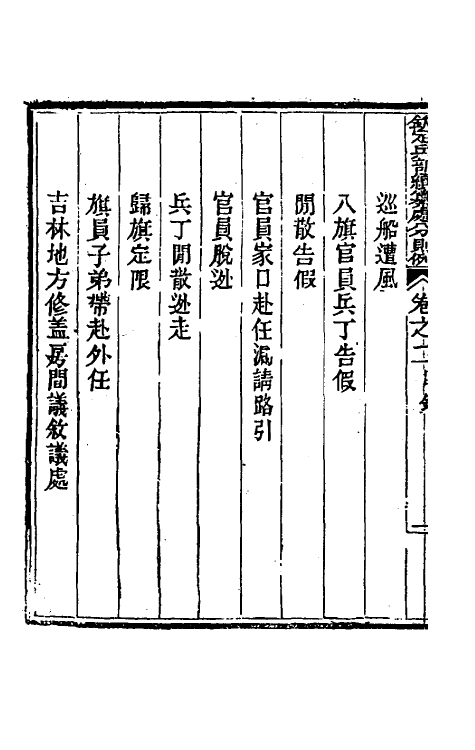 欽定兵部續纂處分則例 卷之二 目錄
巡船遭風
八旗官員兵丁告假
閒散告假
官員家口赴任濫請路引
官員脫逃
兵丁閒散逃走
歸旗定限
旗員子弟帶赴外任
吉林地方修蓋房間議敘議處